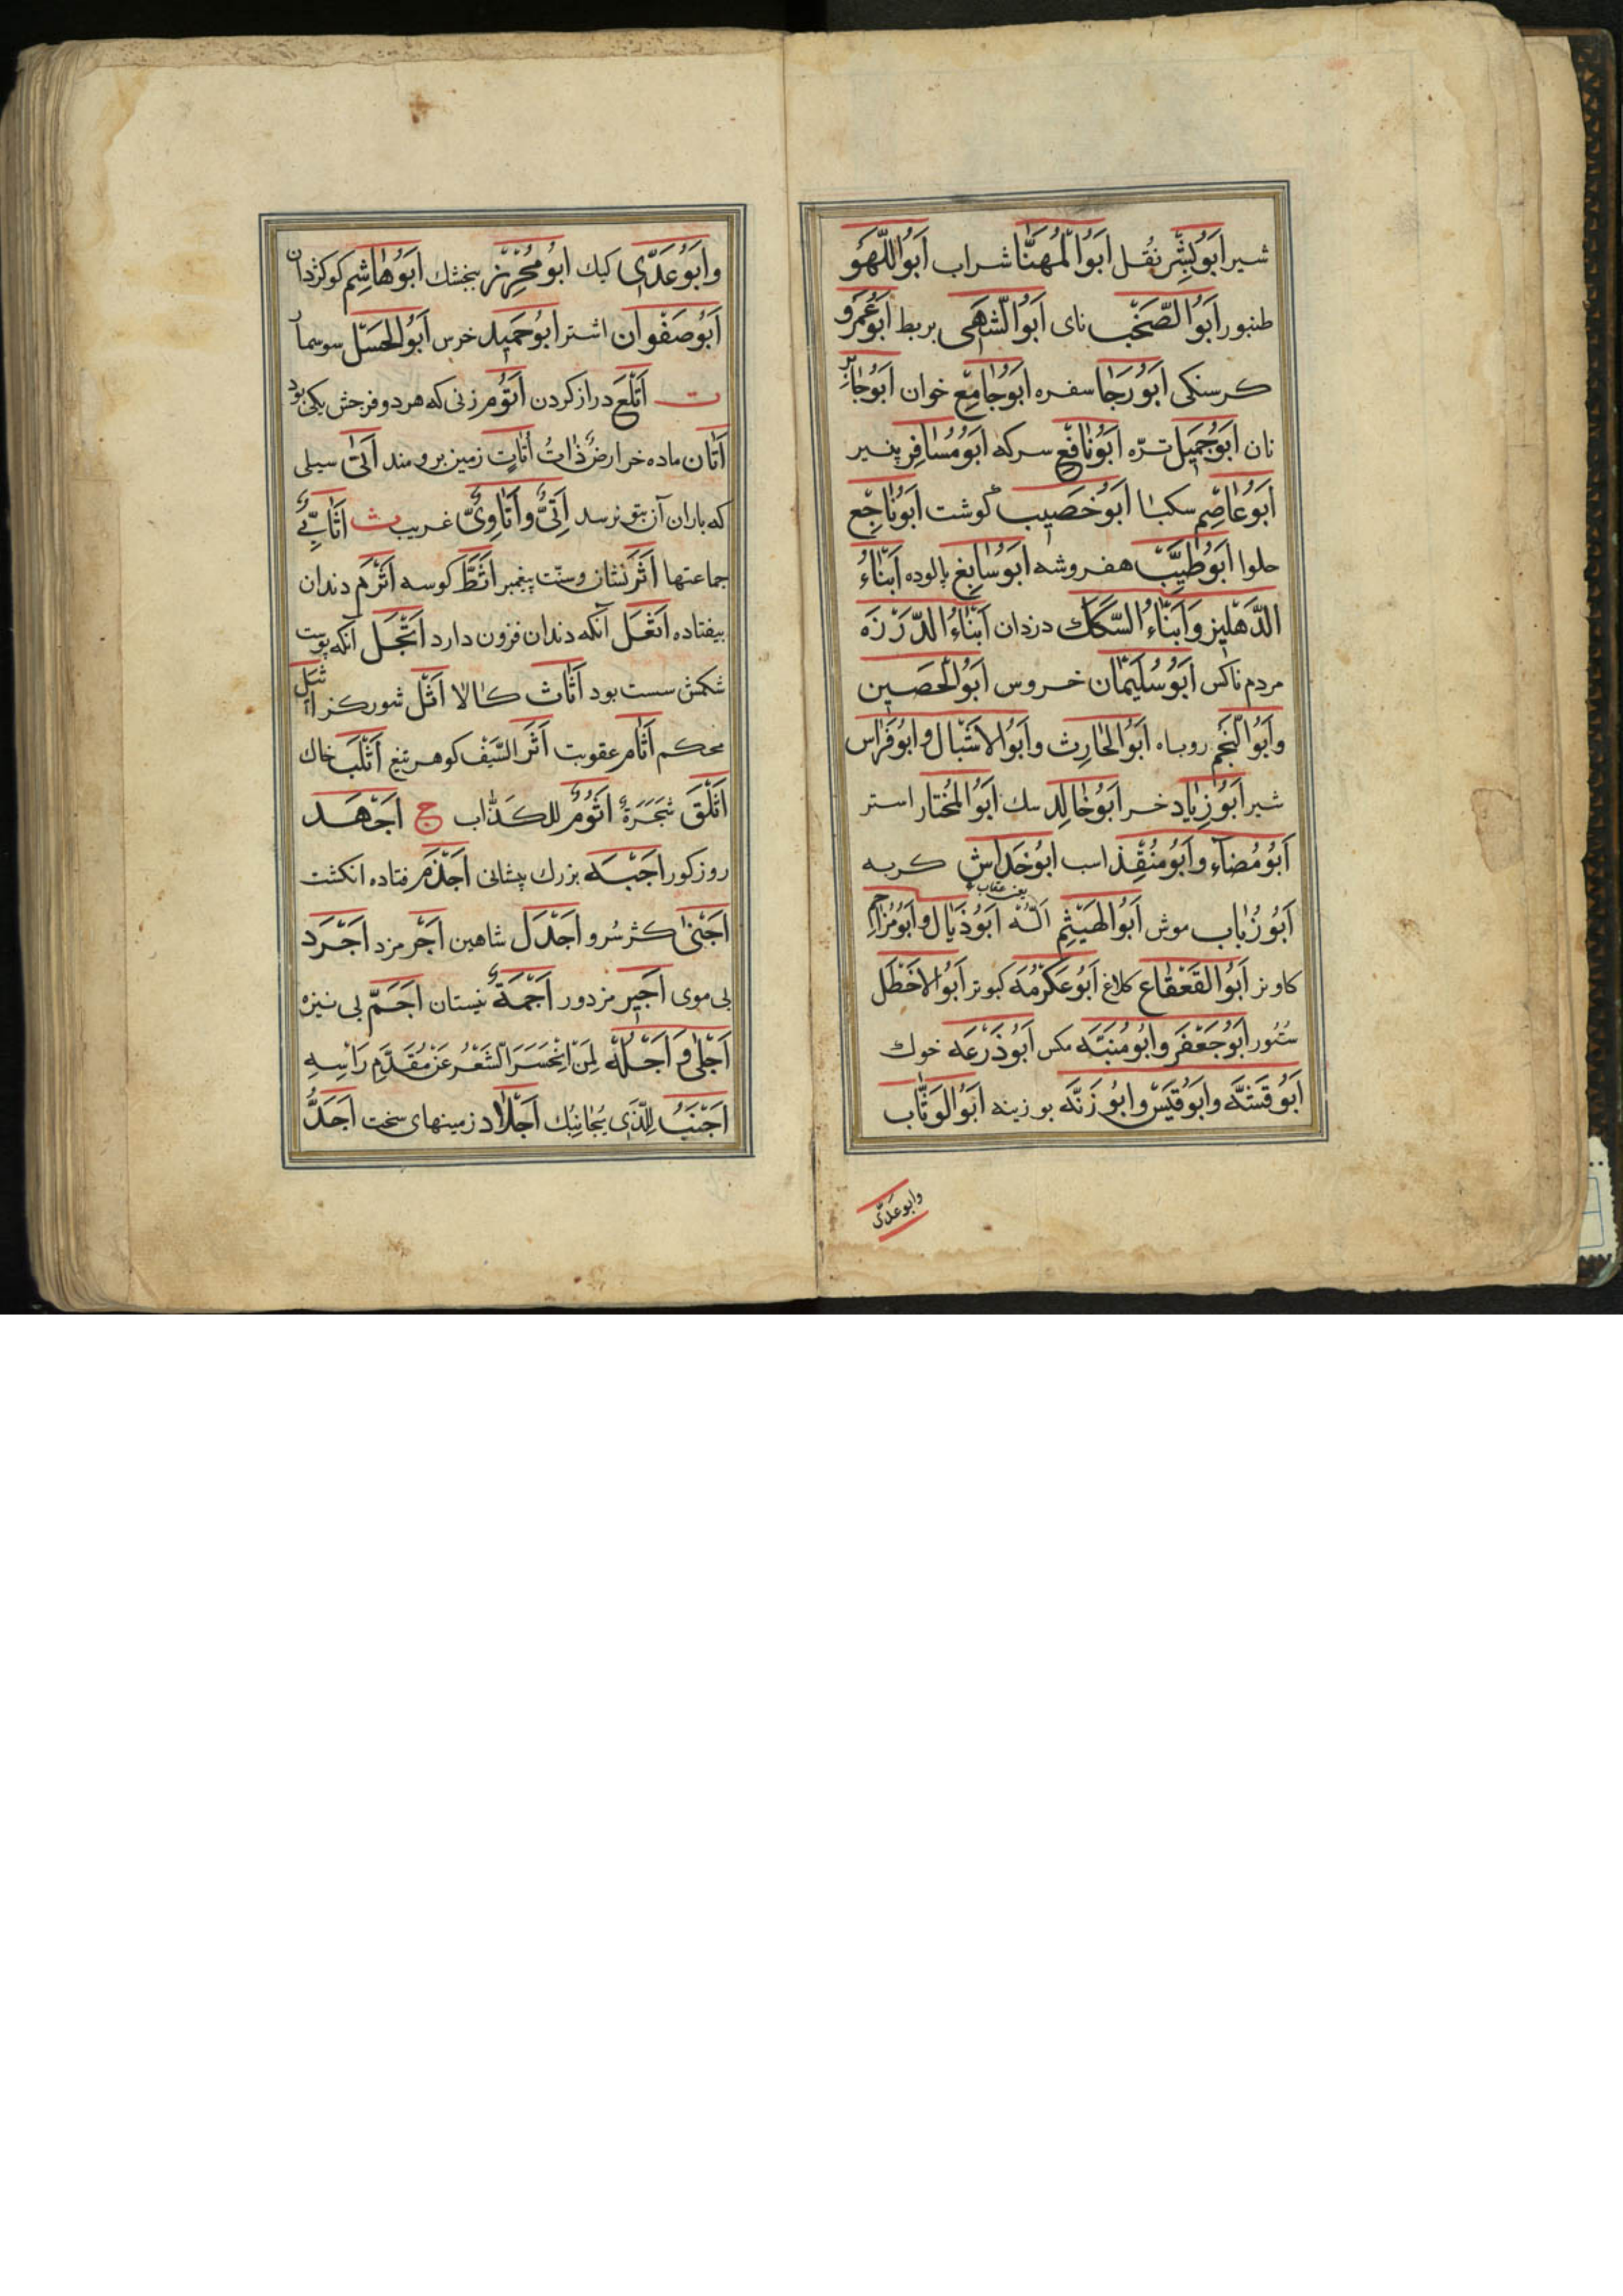 شیر اَبُوبِشْر نُقل اَبُوالْمُهَنّا شراب اَبُواللَّهْو
طنبور اَبُوالصَّخَب نای اَبُوالشَّهی بربط اَبُوعَمْرو
کرسنکی اَبُورَجا سفره اَبُوجامِع خوان اَبُوجابِر
نان اَبُوجَمیل ترّه اَبُونافِع سرکه اَبُومُسافِر پنیر
اَبُوعاصِم سکبا اَبُوخَصیب کوشت اَبُوناجِع
حلوا اَبُوطَیِّب هفروشه اَبُوسابِغ پالوده اَبْناءُ
الدَّهْلیز وَاَبْناءُ السَّکَک دزدان اَبْناءُ الدَّرْزَه
مردم ناکس اَبُوسُلَیْمان خروس اَبُوالْحَصین
واَبُوالنَّجم روباه اَبُوالحارِث واَبُوالاَشْبال واَبُوفِراس
شیر اَبُوزِیاد خر اَبُوخالِد سك اَبُوالمُخْتار استر
اَبُومُضاء واَبُومُنْقِذ اسب ابُوخَداش کربه
اَبُوزُباب موش اَبُوالهَیْثَم اَلُه اَبُوذَیال واَبُومُزاحِم
یعنی عقاب
کاو نر اَبُوالقَعْقاع کلاغ اَبُوعَکْرمَه کبوتر اَبُوالاَخْطَل
سُتُور اَبُوجَعْفَر واَبُومُنَبَّه مکس اَبُوذَرْعَه خوك
اَبُوقَشَّه واَبُوقَیْس وابُوزَنَّه بوزینه اَبُوالوَثّاب
وابوعَدّی
واَبُوعَدّی کیك ابُومُحْرِز بنجشك اَبُوهاشِم کوکردان
اَبُوصَفْوان اشتر ابُوحَمید خرس اَبُوالحَسَل سوسمار
ت اَتْلَعَ دراز کردن اَتُوم زنی که هر دو فرجش یکی بود
اَتان ماده خر ارضٌ ذاتُ اَتاتٍ زمین برومند اَتی سیلی
که باران آن بتو نرسد اَتِیٌّ واَتاوِیٌّ غریب ث اَثابِیُّ
جماعتها اَثَر نشان وسنّت پیغمبر اَثَطّ کوسه اَثْرَم دندان
بیفتاده اَثعَل آنکه دندان فزون دارد اَثْجَل آنکه پوست
شکمش سست بود اَثاث کالا اَثْل شورکز اَثیل
محکم اَثام عقوبت اَثَر السَّیْف کوهر تیغ اَثْلَب خاك
اَثْلَق شَجَرَةٌ اَثُومٌ للکَذّاب ج اَجْهَد
روزکور اَجْبَه بزرك پیشانی اَجْذَم فتاده انکشت
اَجْنی کژسُرو اَجْدَل شاهین اَجْر مزد اَجْرَد
بی موی اَجیر مزدور اَجْمَةٌ نیستان اَجَمّ بی نیزه
اَجْلی و اَجْلَه لِمَنْ انْحَسَرَ الشَّعْرُ عَنْ مُقَدَّمِ رَاْسِهِ
اَجْنَبُ لِلَّذی یُجانِبُك اَجْلاد زمینهای سخت اَجَدُّ